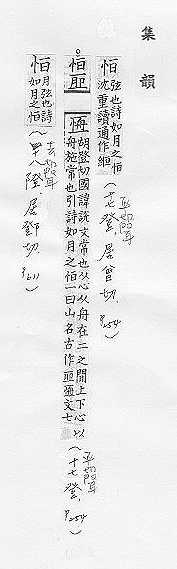 集韻
恒 弦也詩如月之恒
沈重讀通作緪 (平聲 十七登,居曾切, P.254)
恒 胡登切國諱說文常也从心从舟在二之閒上下心以
舟施常也引詩如月之恒一曰山名古作 文七 (平聲 十七登, P.254)
恒 月弦也詩
如月之恒 (去聲 隥居鄧切, P.611)